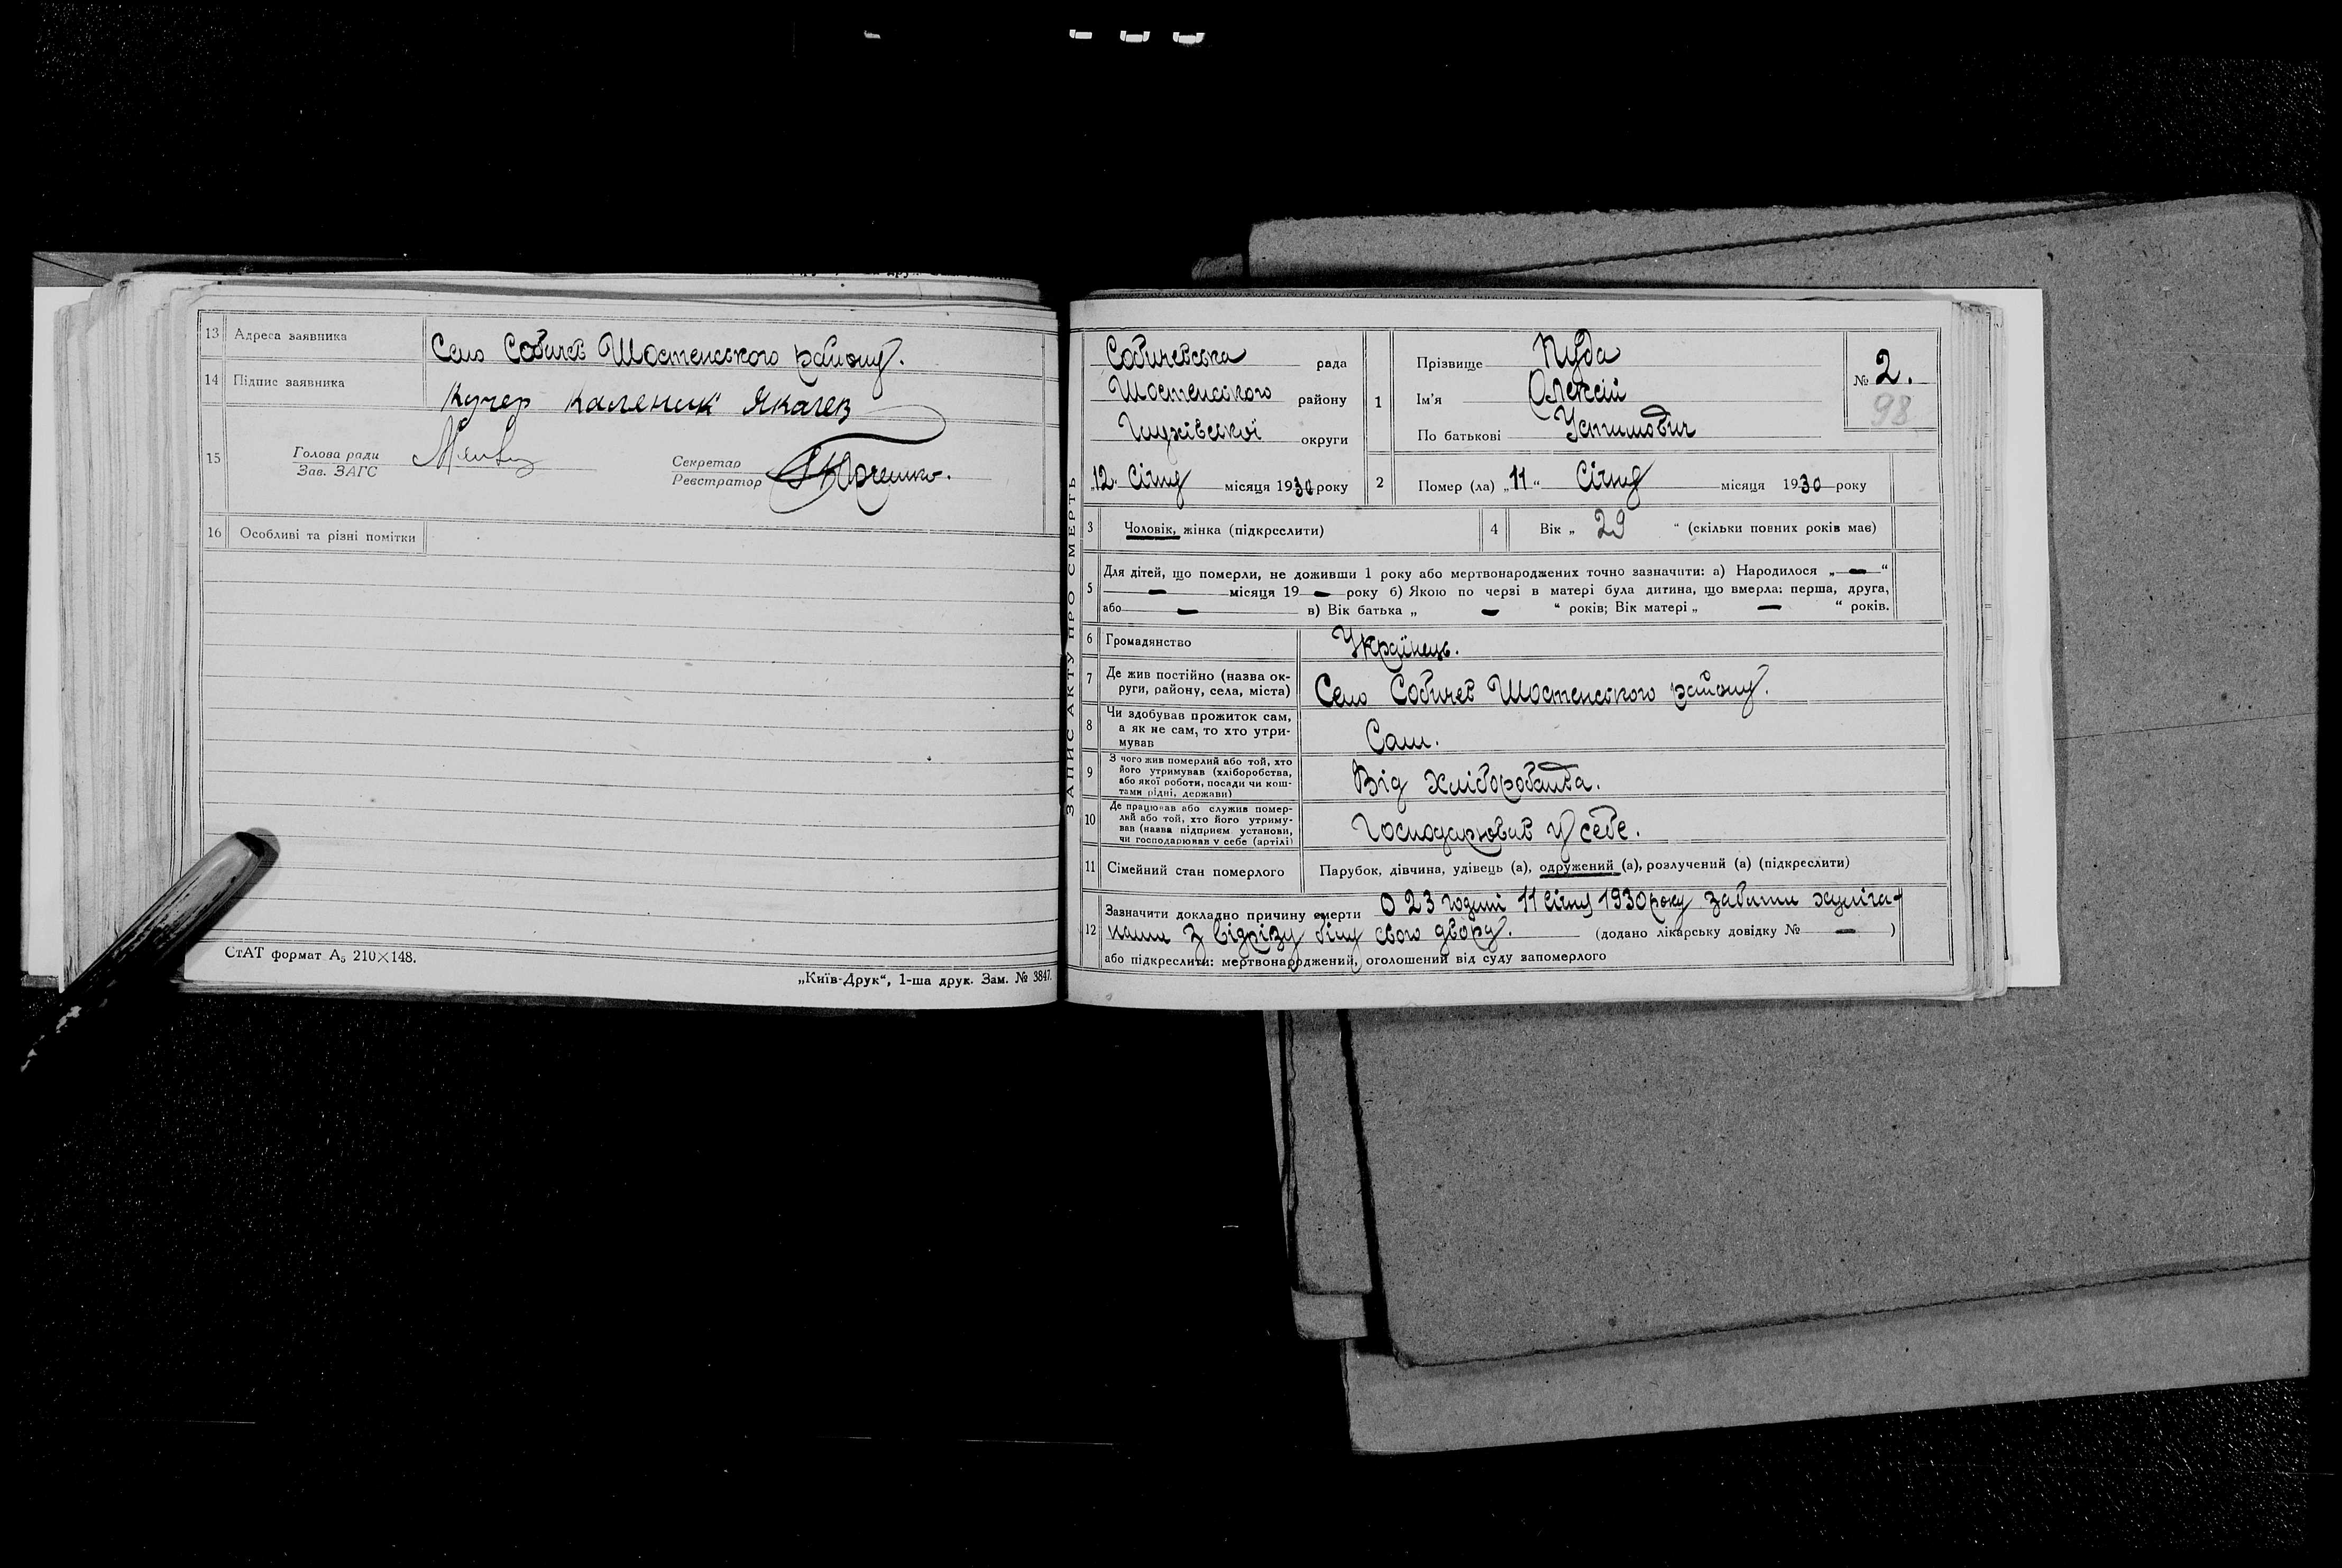 13 Адреса заявника Село Собичев Шостенського району.
14 Підпис заявника Кучер Каленик Якалев
15 Голова ради
Зав. ЗАГС
Секретар
Реєстратор
16 Особливі та різні помітки
СтАТ формат А₅ 210×148.
„Київ-Друк“, 1-ша друк. Зам. № 3847.
ЗАПИС АКТУ ПРО СМЕРТЬ
Собичевська рада
Шостенського району
Глухівської округи
1 Прізвище Куда
Ім'я Олексій
По батькові Устимович
№ 2.
98
12 Січня місяця 1930 року
2 Помер (ла) „11“ Січня місяця 1930 року
3 Чоловік, жінка (підкреслити)
4 Вік „ 29 “ (скільки повних років має)
5 Для дітей, що померли, не доживши 1 року або мертвонароджених точно зазначити: а) Народилося „—“
— місяця 19 — року б) Якою по черзі в матері була дитина, що вмерла: перша, друга,
або — в) Вік батька „ — “ років; Вік матері „ — “ років.
6 Громадянство Українець.
7 Де жив постійно (назва ок-
руги, району, села, міста) Село Собичев Шостенського району.
8 Чи здобував прожиток сам,
а як не сам, то хто утри-
мував Сам.
9 З чого жив померлий або той, хто
його утримував (хліборобства,
або якої роботи, посади чи кош-
тами рідні, держави) Від хліборобства.
10 Де працював або служив помер-
лий або той, хто його утриму-
вав (назва підприєм установи,
чи господарював у себе (артілі) Господарював у себе.
11 Сімейний стан померлого Парубок, дівчина, удівець (а), одружений (а), розлучений (а) (підкреслити)
12 Зазначити докладно причину смерти О 23 годині 11 січня 1930 року забити хуліга-
нами з відрізу біля свого двору. (додано лікарську довідку № — )
або підкреслити: мертвонароджений, оголошений від суду запомерлого